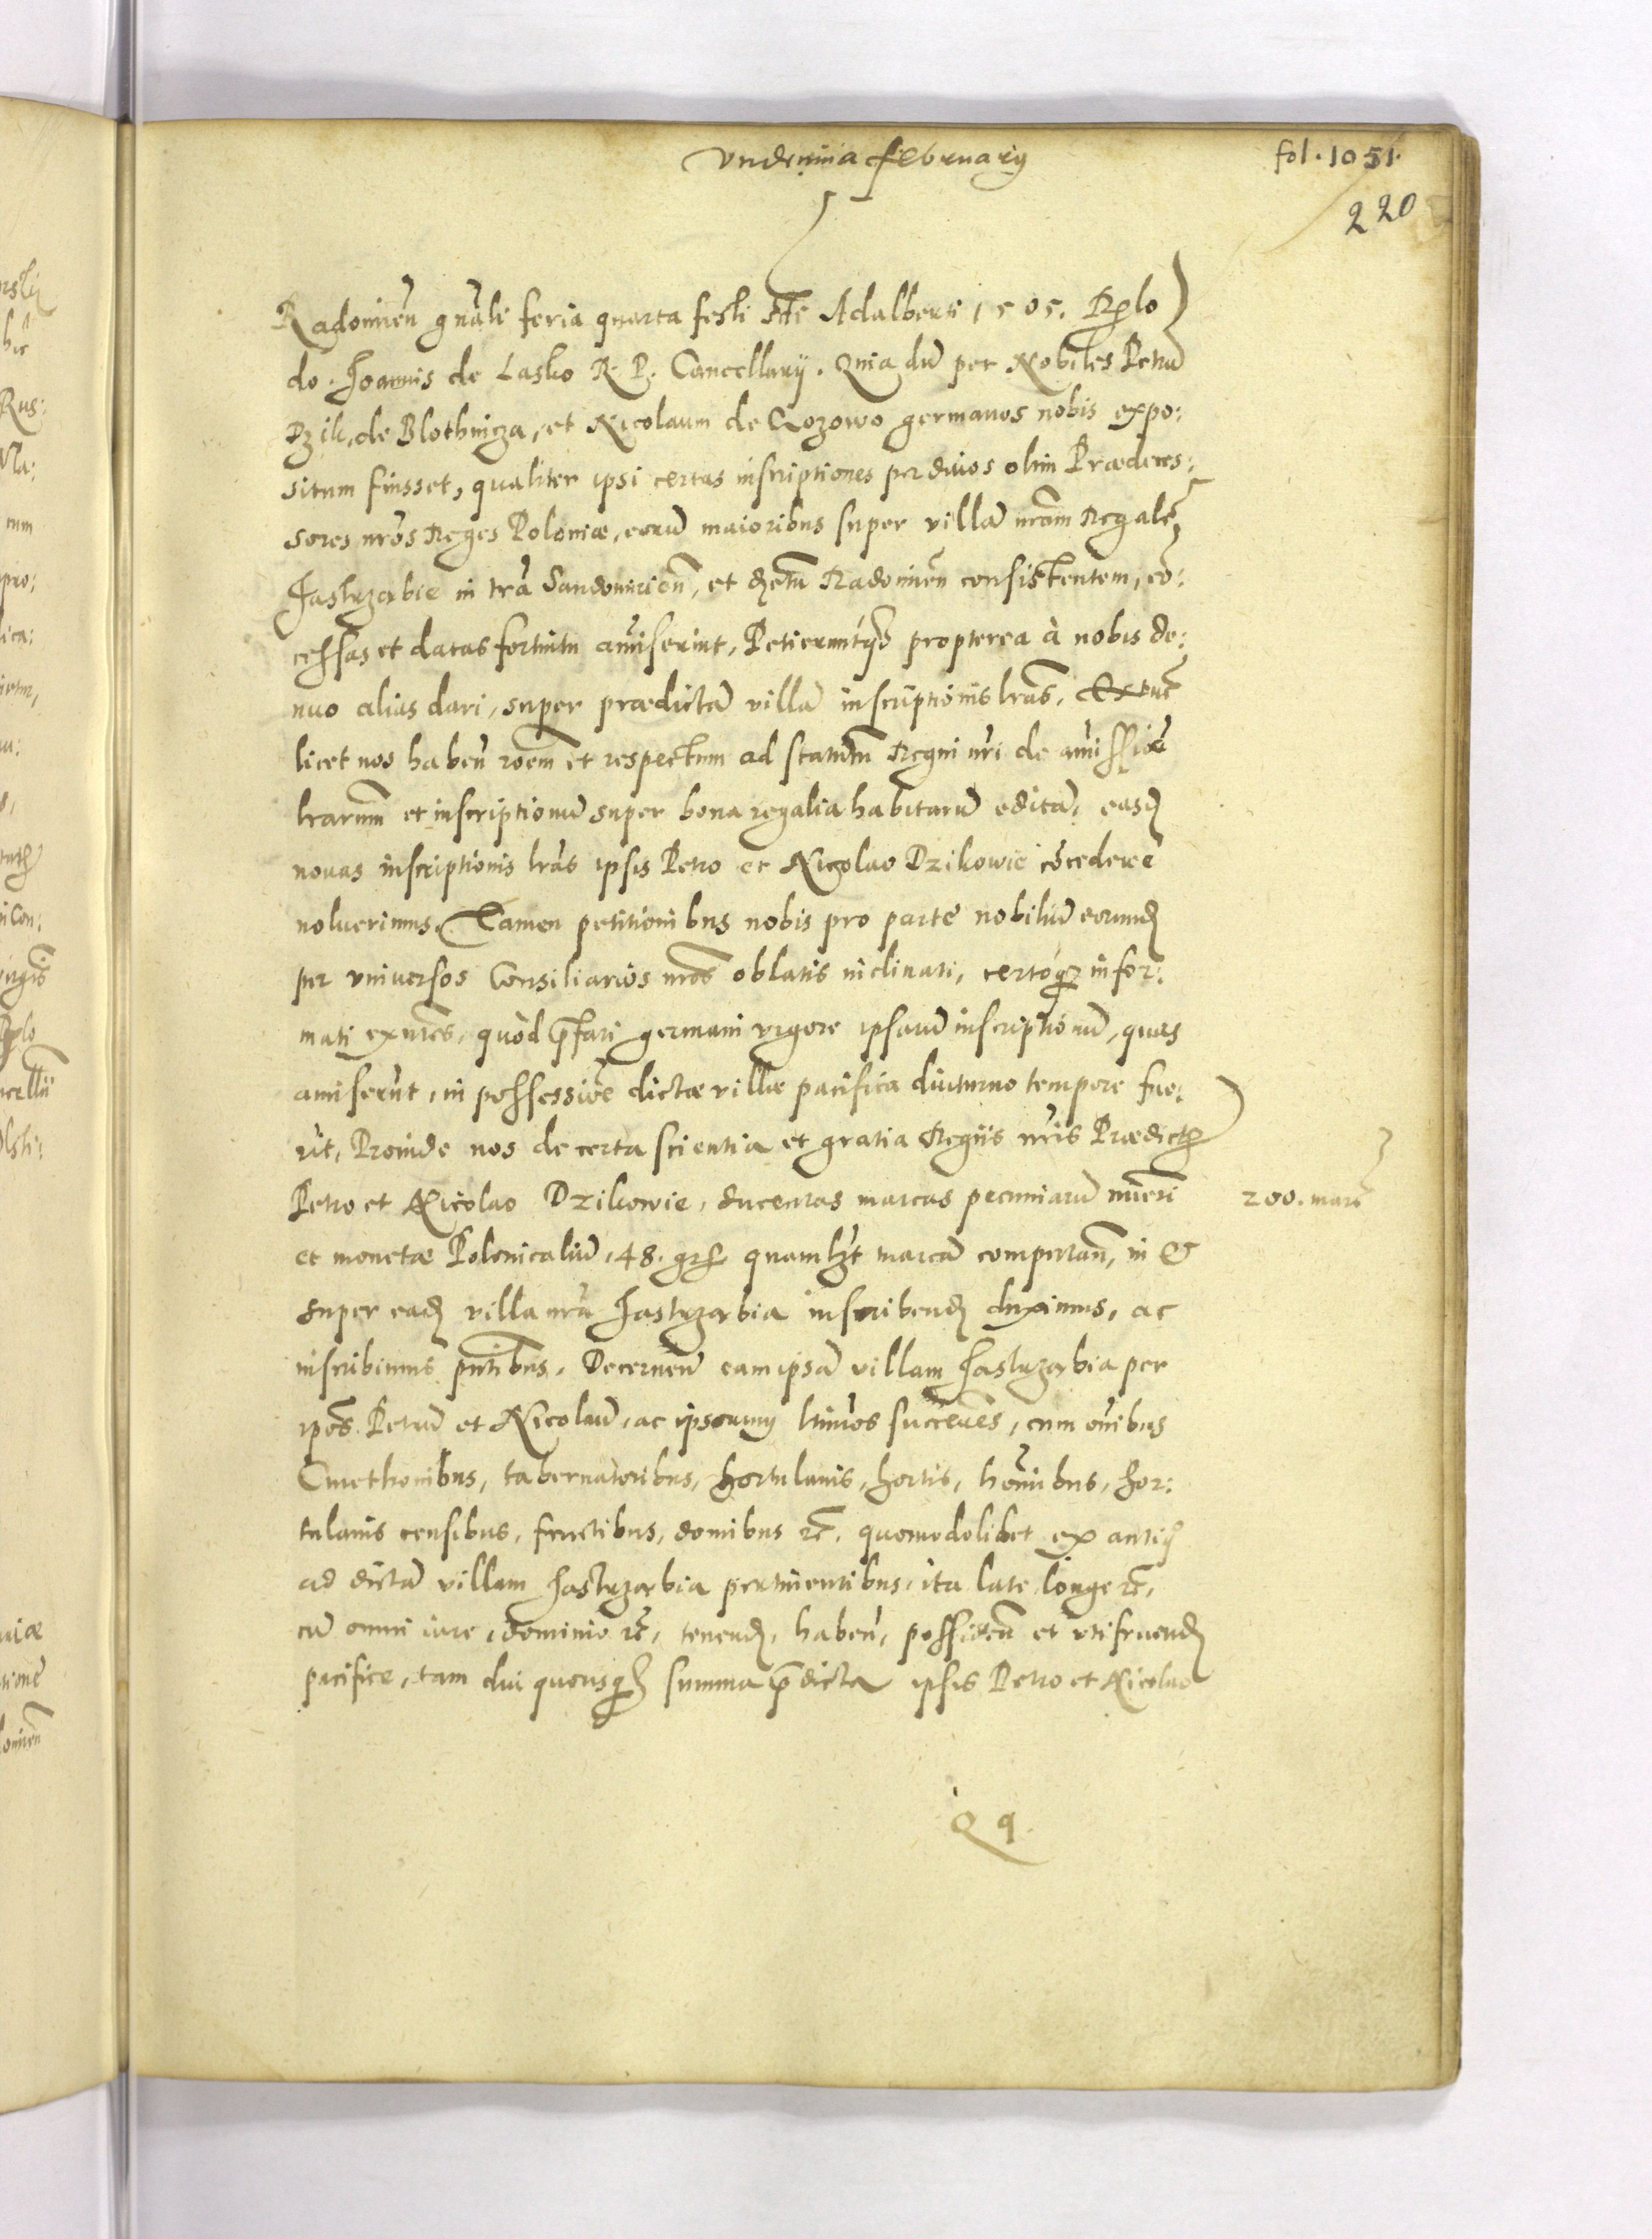 Vndecima February
fol. 1051.
220
Radomien̄ gnāli feria quarta festi Scti Adalberti 1505. Rplo
do. Joannis de Lasko R. P. Cancellarij. Quia dū per Nobiles Petrū
Dzik, de Blothnicza, et Nicolaum de Cozowo germanos nobis expo:
situm fuisset, qualiter ipsi certas inscriptiones per diuos olim Prædeces:
sores nr̄os Reges Poloniæ, eorū maioribus super villā nr̄am Regalē
Jastrzabie in tr̄a Sandomirien̄, et dictu Radomien̄ consistentem, cō:
cessas et datas fortuitu amiserint, Petieruntq̄ propterea à nobis de:
nuo alias dari, super prædictā villā inscriptionis lr̄as, Ex tūc
licet nos haben̄ roēm et respectum ad statutū Regni nr̄i de amissiōe
lr̄arum et inscriptionū super bona regalia habitarū editū, easd
nouas inscriptionis lr̄as ipsis Petro et Nicolao Dzikowie cōcedere
noluerimus. Tamen petitionibus nobis pro parte nobiliū eorund
per vniuersos Consiliarios nr̄os oblatis inclinati, certoq̄ infor:
mati existen̄tes, quòd p̄fati germani vigore ipsarū inscriptionū, quas
amiserūt, in possessiōe dictæ villæ pacifica diuturno tempore fue:
rūt, Proinde nos de certa scientia et gratia Regiis nr̄is Prædictis
Petro et Nicolao Dzikowie, ducentas marcas pecuniarū nūeri
200. marc̄
et monetæ Polonicaliū, 48. gros quamlȝt marcā computan̄, in et
super ead villa nr̄a Jastrzabia inscribend duximus, ac
inscribimus pn̄tibus. Decernen̄ eam ipsā villam Jastrzabia per
ipōs Petrū et Nicolaū, ac ipsorum ltimos succeōres, cum oībus
Cmethonibus, tabernatoribus, hortulanis, hortis, hoībus, hor:
tulanis censibus, fructibus, domibus etc̄. quomodolibet ex antiq̄
ad dictā villam Jastrzabia pertinentibus, ita late longe etc̄,
cū omni iure, dominio etc̄, tenend, haben̄, possiden̄ et vtifruend
pacifice, tam diu quousq̄ summa p̄dicta ipsis Petro et Nicolao
Q q.